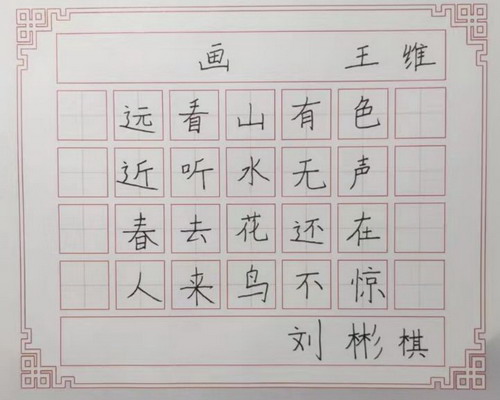 画 王维
远看山有色
近听水无声
春去花还在
人来鸟不惊
刘彬棋